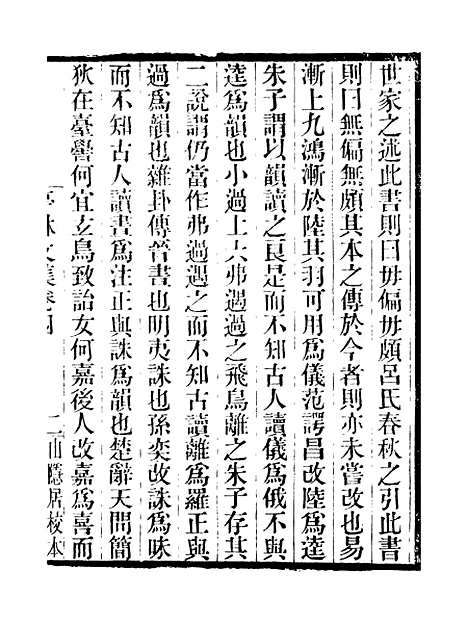 世家之述此書則曰毋偏毋頗呂氏春秋之引此書
則曰無偏無頗其本之傳於今者則亦未嘗改也易
漸上九鴻漸於陸其羽可用爲儀范諤昌改陸爲逵
朱子謂以韻讀之良是而不知古人讀儀爲俄不與
逵爲韻也小過上六弗遇過之飛鳥離之朱子存其
二說謂仍當作弗過遇之而不知古讀離爲羅正與
過爲韻也雜卦傳晉晝也明夷誅也孫奕改誅爲昧
而不知古人讀晝爲注正與誅爲韻也楚辭天問簡
狄在臺嚳何宜玄鳥致詒女何嘉後人改嘉爲喜而
亭林文集卷四
二 山隱居校本